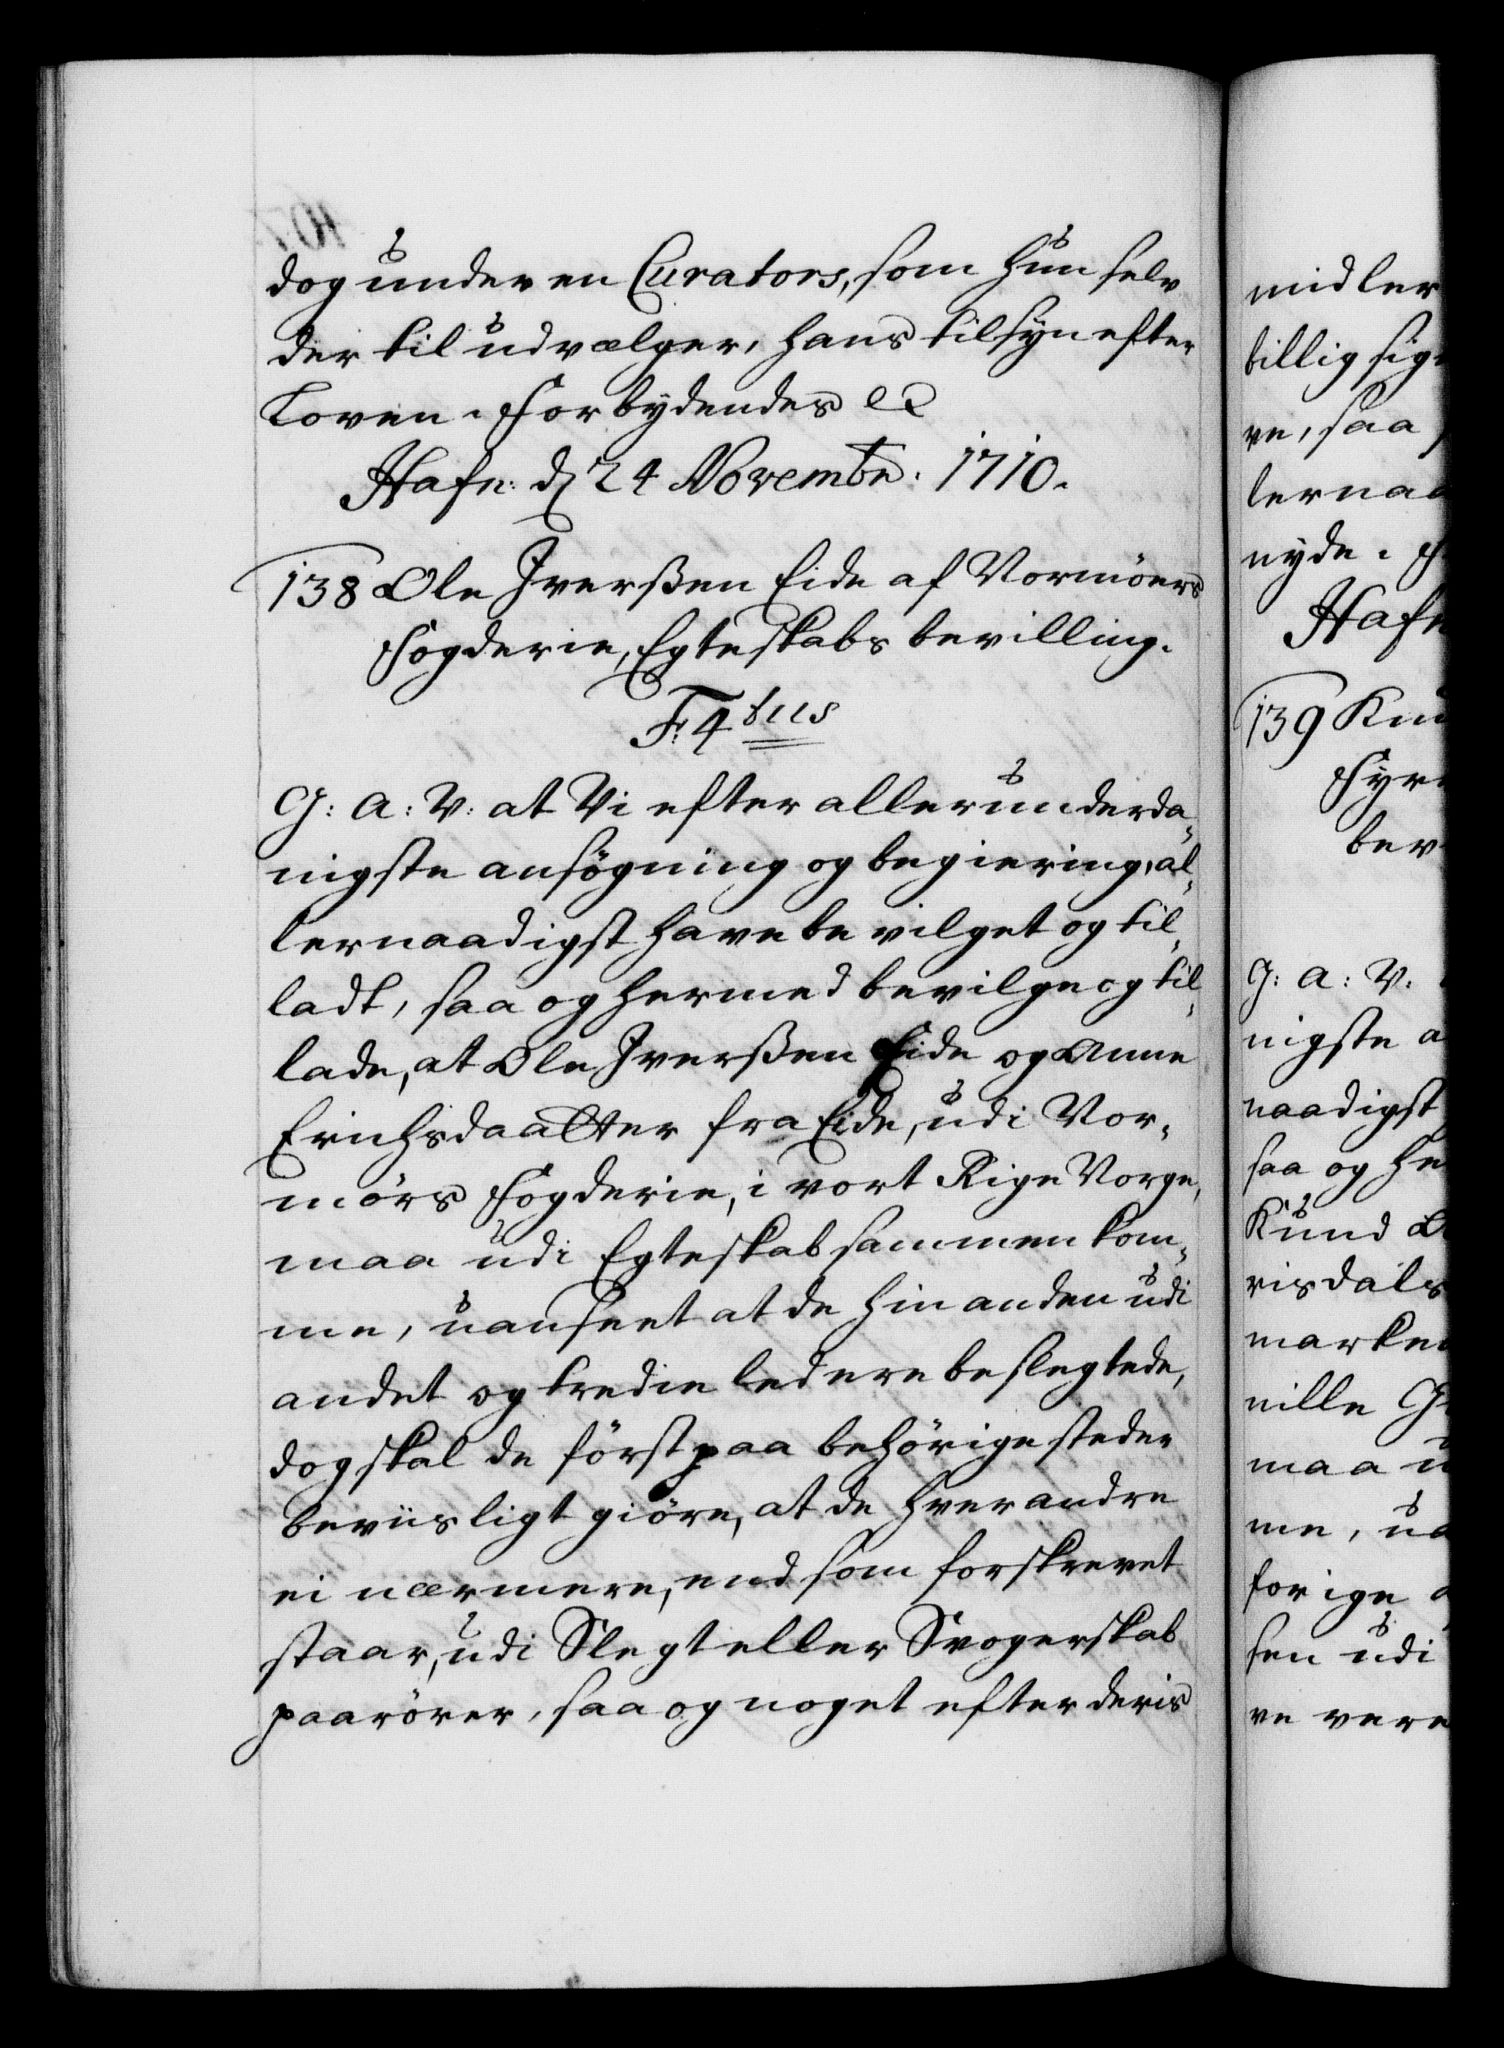 dog under en Curators, som hun selv
der til udvælger, hans tilsyn efter
Loven. Forbydendes &c
Hafn: d 24 Novembr: 1710.
138 Ole Iverßen Eide af Normöers
Fogderie, Egteskabs bevilling.
F: 4tus
G: A: V: at Vi efter allerunderda-
nigste ansögning og begiering, al-
lernaadigst have bevilget og til-
ladt, saa og hermed bevilge og til-
lade, at Ole Iverßen Eide og Anne
Erichsdaatter fra Eide, udi Nor-
mörs Fogderie, i vort Rige Norge,
maa udi Egteskab sammen kom-
me, uanseet at de hinanden udi
andet og tredie led ere beslegtede,
dog skal de först paa behörige steder
beviisligt giöre, at de hverandre
ei nærmere, end som forskrevet
staar, udi Slegt eller Svogerskab
paarörer, saa og noget efter deris
midler
tillig
ve, saa
lernaa
nyde.
Hafn
139 Knu
Fyr
bev
G: A: V:
nigste a
naadigst
saa og he
Knud
risdals
marken
nille G
maa u
me, ua
forige
sen udi
re vere